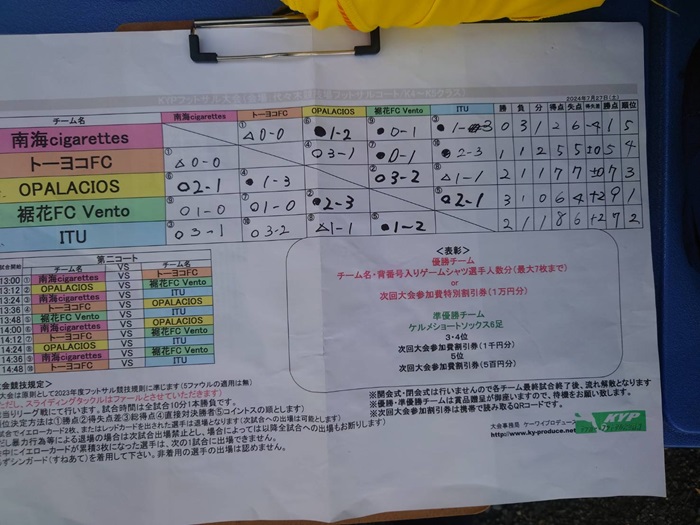 2024年7月27日(土)
チーム名 南海cigarettes トーヨコFC OPALACIOS 裾花FC Vento ITU 勝 負 分 得点 失点 得失差 勝点 順位
南海cigarettes ① △0-0 ⑥ ●1-2 ⑨ ●0-1 ③ ●1-3 0 3 1 2 6 -4 1 5
トーヨコFC ① △0-0 ④ ○3-1 ⑦ ●0-1 ⑩ ●2-3 1 1 2 5 5 ±0 5 4
OPALACIOS ⑥ ○2-1 ④ ●1-3 ② ○3-2 ⑧ △1-1 2 1 1 7 7 ±0 7 3
裾花FC Vento ⑨ ○1-0 ⑦ ○1-0 ② ●2-3 ⑤ ○2-1 3 1 0 6 4 +2 9 1
ITU ③ ○3-1 ⑩ ○3-2 ⑧ △1-1 ⑤ ●1-2 2 1 1 8 6 +2 7 2
第二コート
試合開始 チーム名 VS チーム名
13:00 ① 南海cigarettes VS トーヨコFC
13:12 ② OPALACIOS VS 裾花FC Vento
13:24 ③ 南海cigarettes VS ITU
13:36 ④ トーヨコFC VS OPALACIOS
13:48 ⑤ 裾花FC Vento VS ITU
14:00 ⑥ 南海cigarettes VS OPALACIOS
14:12 ⑦ トーヨコFC VS 裾花FC Vento
14:24 ⑧ OPALACIOS VS ITU
14:36 ⑨ 南海cigarettes VS 裾花FC Vento
14:48 ⑩ トーヨコFC VS ITU
<表彰>
優勝チーム
チーム名・背番号入りゲームシャツ選手人数分(最大7枚まで)
or
次回大会参加費特別割引券(1万円分)
準優勝チーム
ケルメショートソックス6足
3・4位
次回大会参加費割引券(1千円分)
5位
次回大会参加費割引券(5百円分)
会競技規定>
大会は原則として2023年度フットサル競技規則に準じます(5ファウルの適用は無)
だし、スライディングタックルはファールとさせていただきます)
当りリーグ戦にて行います。試合時間は全試合10分1本勝負です。
位決定方法は①勝点②得失点差③総得点④直接対決勝者⑤コイントスの順とします)
試合でイエローカード2枚、またはレッドカードを出された選手は退場となります(次試合への出場は可能とします)
だし暴力行為等による退場の場合は次試合出場禁止とし、場合によっては以降全試合への出場もお断りします)
会中にイエローカードが累積3枚になった選手は、次の1試合に出場できません。
ずシンガード(すねあて)を着用して下さい。非着用の選手の出場は認めません。
※開会式・閉会式は行いませんので各チーム最終試合終了後、流れ解散となります
※優勝・準優勝チームは賞品贈呈が御座いますので、待機をお願い致します。
※次回大会参加費割引券は携帯で読み取るQRコードです。
大会事務局 ケーワイプロデュース
http://www.ky-produce.net
KYP